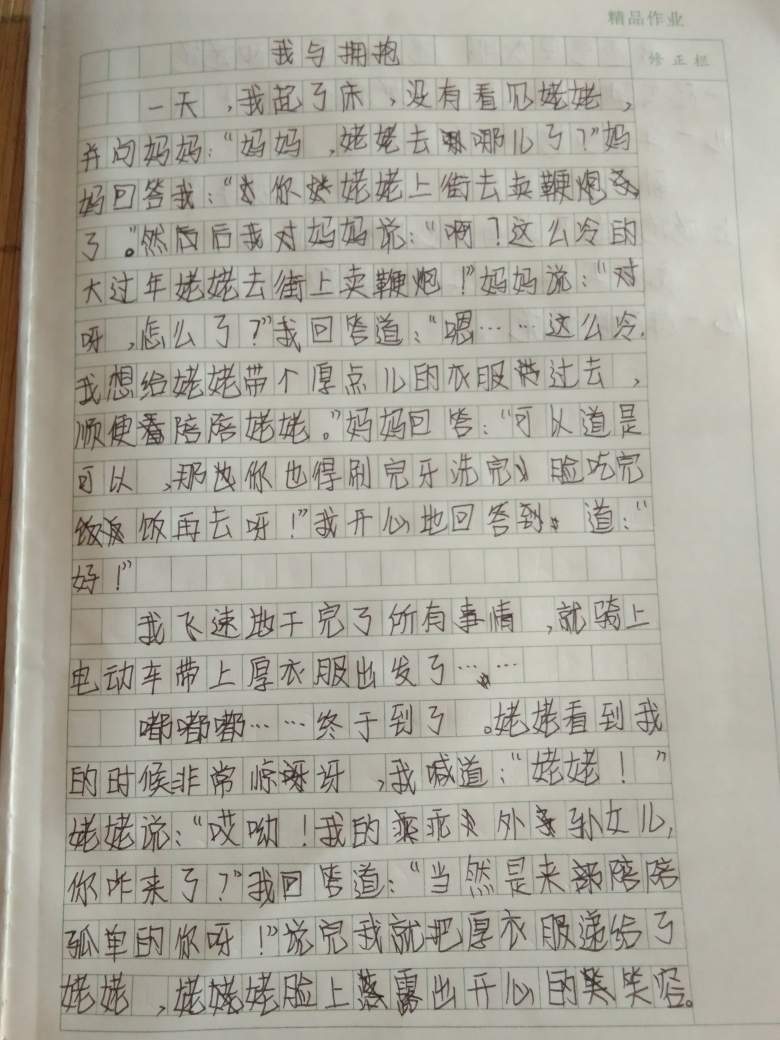 精品作业
修正栏
我与拥抱
一天，我起了床，没有看见姥姥，
并问妈妈：“妈妈，姥姥去哪儿了？”妈
妈回答我：“你姥姥上街去卖鞭炮
了。”然后后我对妈妈说：“啊？这么冷的
大过年姥姥去街上卖鞭炮！”妈妈说：“对
呀，怎么了？”我回答道：“嗯……这么冷，
我想给姥姥带个厚点儿的衣服带过去，
顺便看陪陪姥姥。”妈妈回答：“可以道是
可以，那你也得刷完牙洗完脸吃完
饭再去呀！”我开心地回答到道：“
好！”
我飞速地干完了所有事情，就骑上
电动车带上厚衣服出发了……
嘟嘟嘟……终于到了。姥姥看到我
的时候非常惊讶，我喊道：“姥姥！”
姥姥说：“哎呦！我的乖外孙女儿，
你咋来了？”我回答道：“当然是来陪陪
孤单的你呀！”说完我就把厚衣服递给了
姥姥，姥姥姥脸上露出开心的笑容。